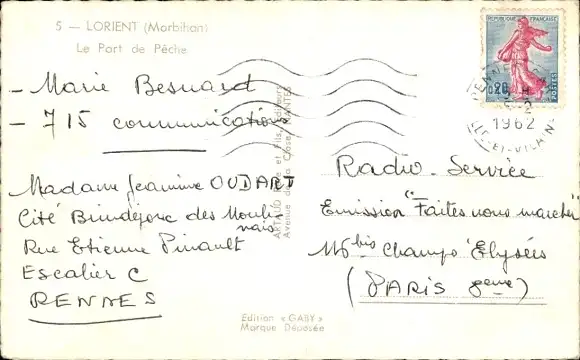 5 — LORIENT (Morbihan)
Le Port de Pêche
- Marie Besnard
- 715 communications
Madame Jeannine OUDART
Cité Brindejonc des Mouli
nais
Rue Etienne Pinault
Escalier C
RENNES
ARTAUD Père et Fils, Editeurs
Avenue de la Close, NANTES
Edition « GABY »
Marque Déposée
REPUBLIQUE FRANÇAISE
0,20
POSTES
RENNES
1962
ILLE-ET-VILAINE
Radio-Service
Emission "Faites nous marcher"
116 bis Champs Elysées
(PARIS 8eme)